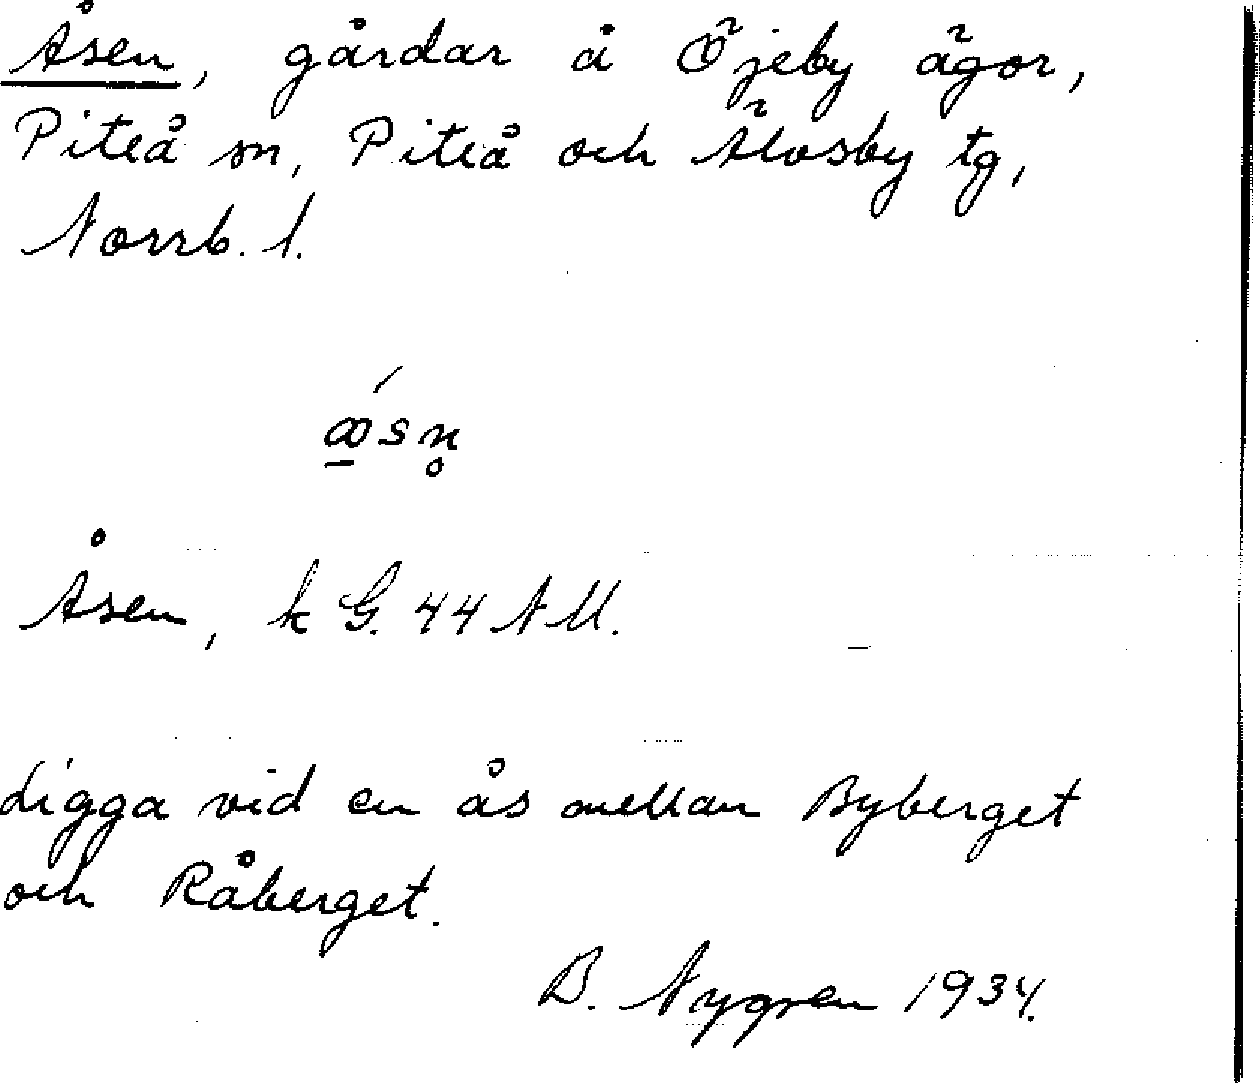 Åsen, gårdar å Öjeby ägor,
Piteå sn, Piteå och Älvsby tg,
Norrb. l.
Åsen, k G. 44 NM.
Ligga vid en ås mellan Byberget
och Råberget.
B. Nygren 1934.